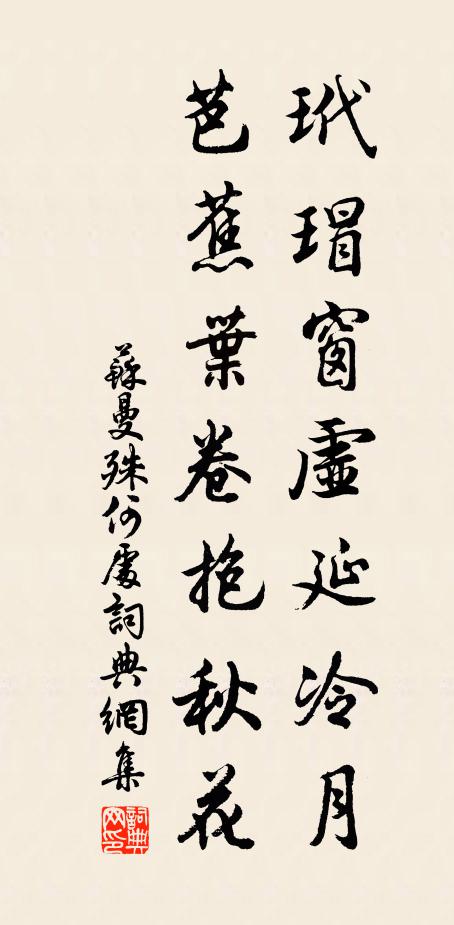 玳瑁窗虛延冷月
芭蕉葉卷抱秋花
蘇曼殊何處詞典網集
詞典網印